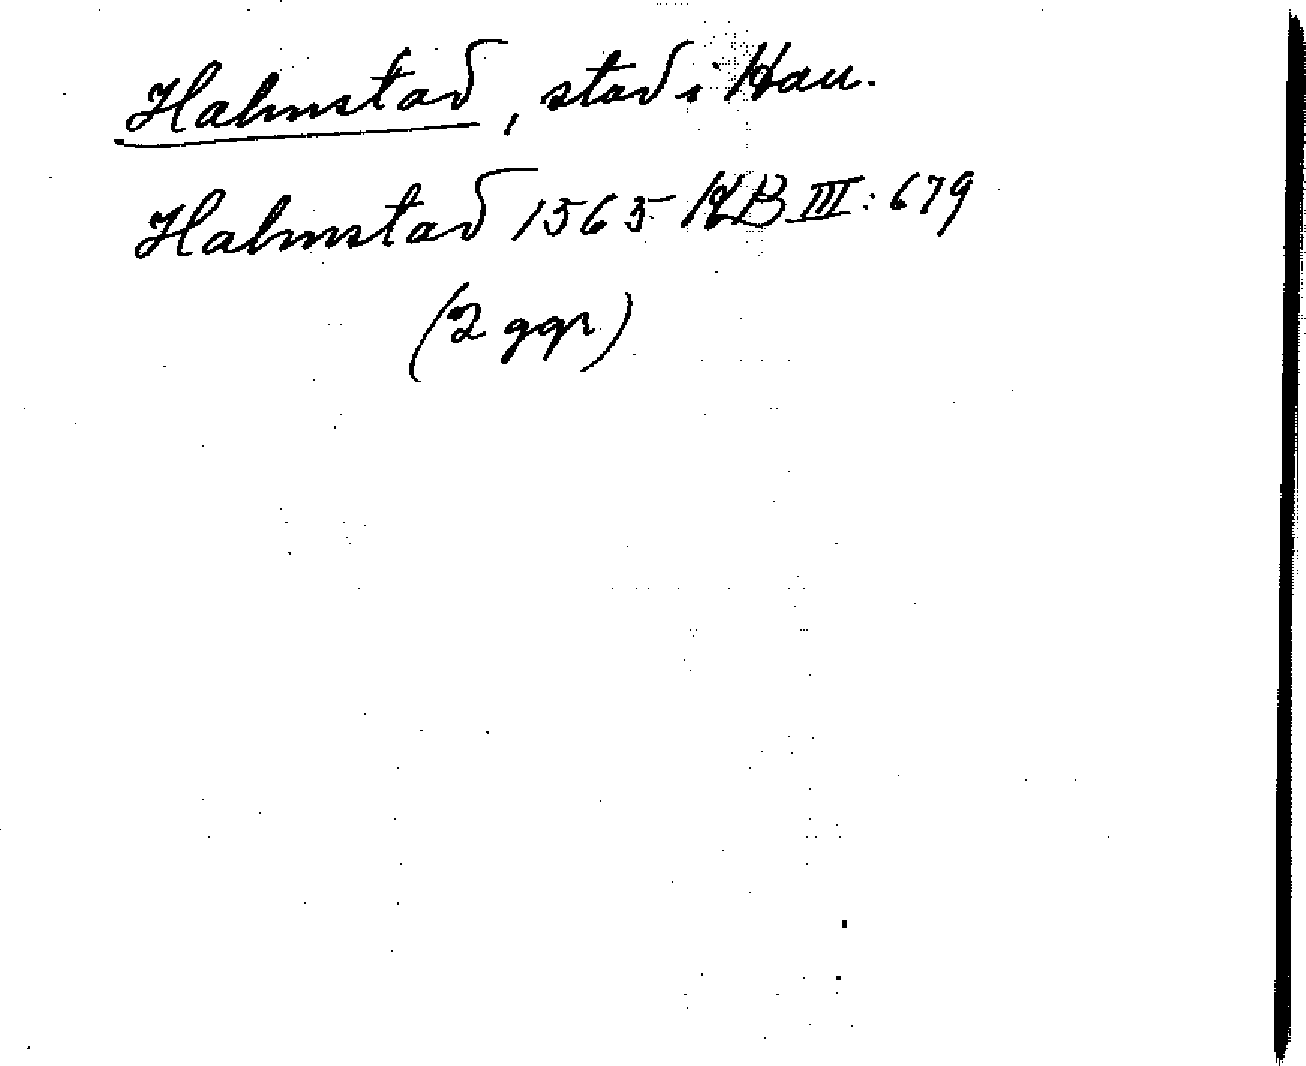 Halmstad, stad i Hall.
Halmstad 1565 HB III: 679
(2 ggr)